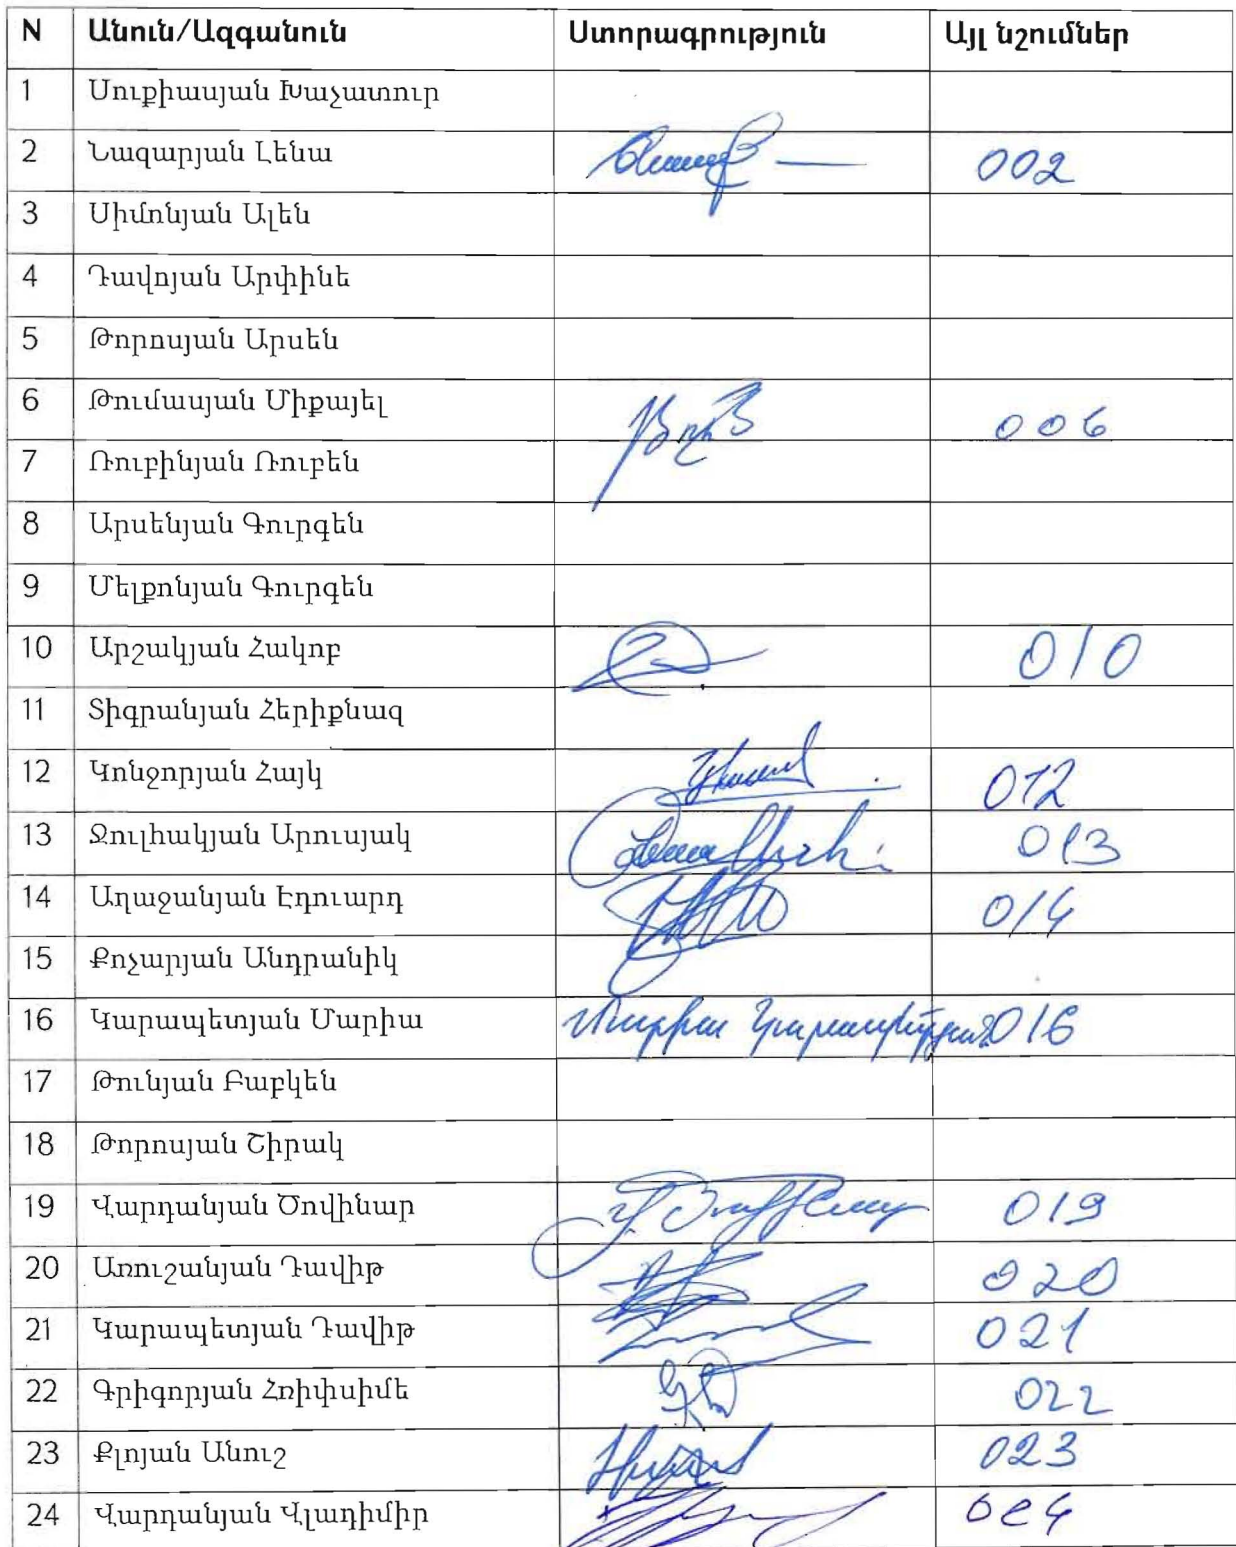 N Անուն/Ազգանուն Ստորագրություն Այլ նշումներ
1 Սուքիասյան Խաչատուր
2 Նազարյան Լենա 002
3 Սիմոնյան Ալեն
4 Դավոյան Արփինե
5 Թորոսյան Արսեն
6 Թումասյան Միքայել 006
7 Ռուբինյան Ռուբեն
8 Արսենյան Գուրգեն
9 Մելքոնյան Գուրգեն
10 Արշակյան Հակոբ 010
11 Տիգրանյան Հերիքնազ
12 Կոնջորյան Հայկ 012
13 Ջուլհակյան Արուսյակ 013
14 Աղաջանյան Էդուարդ 014
15 Քոչարյան Անդրանիկ
16 Կարապետյան Մարիա Մարիա Կարապետյան 016
17 Թունյան Բաբկեն
18 Թորոսյան Շիրակ
19 Վարդանյան Ծովինար 019
20 Առուշանյան Դավիթ 020
21 Կարապետյան Դավիթ 021
22 Գրիգորյան Հռիփսիմե 022
23 Քլոյան Անուշ 023
24 Վարդանյան Վլադիմիր 024